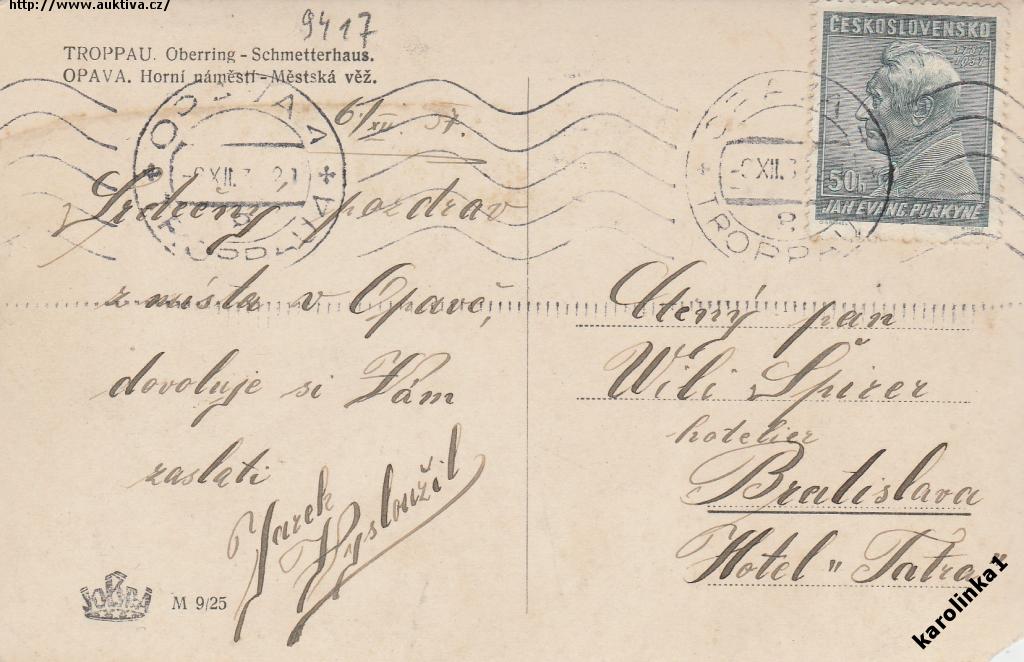 http://www.auktiva.cz/
9417
TROPPAU. Oberring - Schmetterhaus.
OPAVA. Horní náměstí - Městská věž.
ČESKOSLOVENSKO
1787
1937
50h
JAN EVANG. PURKYNĚ
OPAVA 4
XII.3
TROPPAU
OPAVA
XII.3
2
TROPPAU
6/XII. 37.
Srdečný pozdrav
z místa v Opavě,
dovoluje si Vám
zaslati
Jarek
Vysloužil
Ctěný pan
Wili Špirer
hotelier
Bratislava
Hotel „ Tatra "
M 9/25
karolinka1